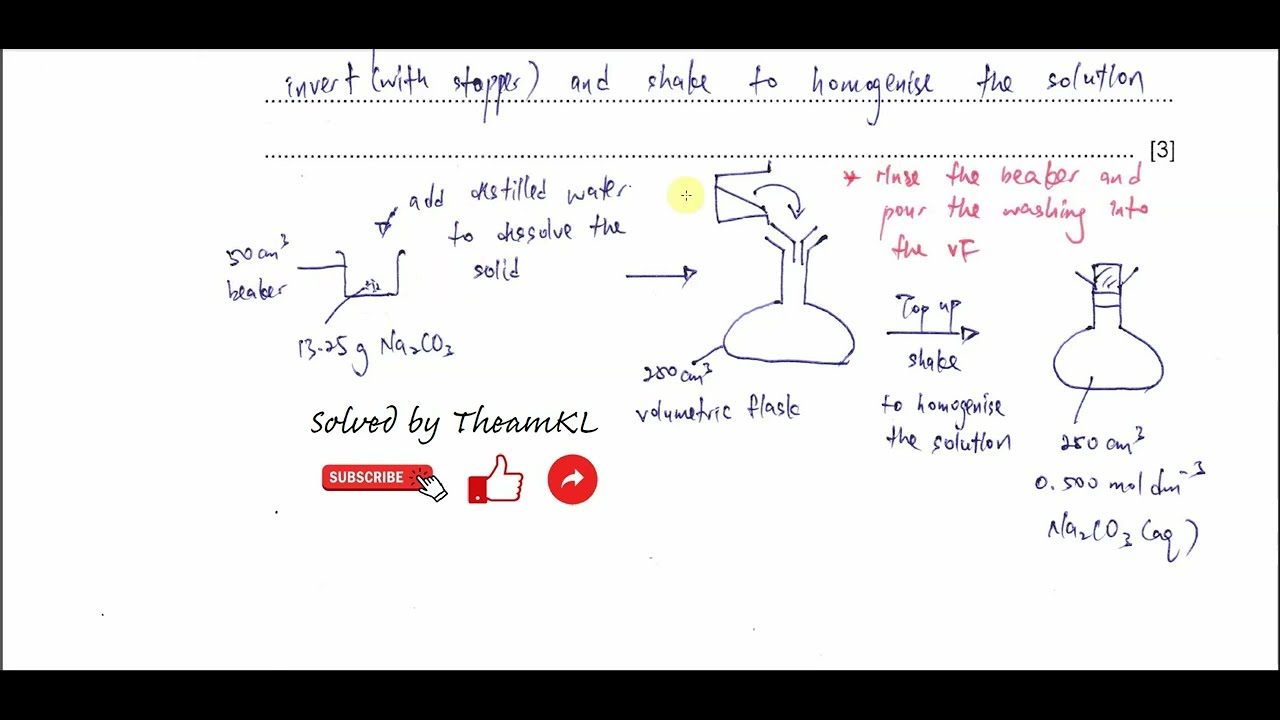 invert (with stopper) and shake to homogenise the solution
[3]
add distilled water
to dissolve the
solid
50 cm³
beaker
13.25 g Na₂CO₃
* rinse the beaker and
pour the washing into
the VF
250 cm³
volumetric flask
Top up
shake
to homogenise
the solution
250 cm³
0.500 mol dm⁻³
Na₂CO₃ (aq)
Solved by TheamKL
SUBSCRIBE